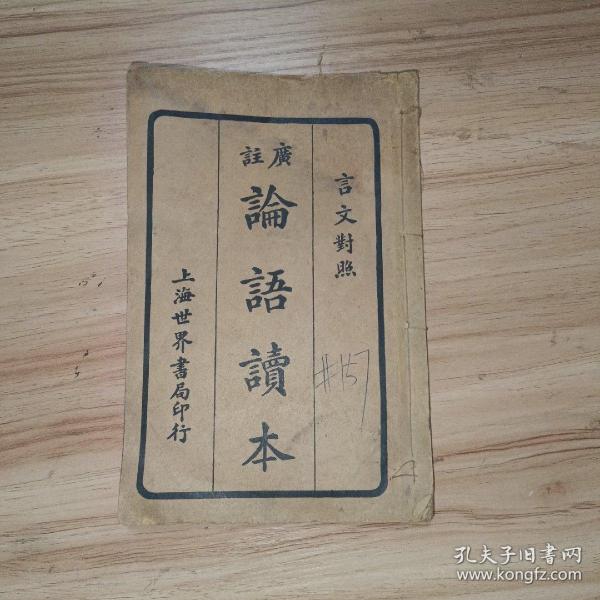 言文對照
廣註
論語讀本
上海世界書局印行
#157
孔夫子旧书网
www.kongfz.com